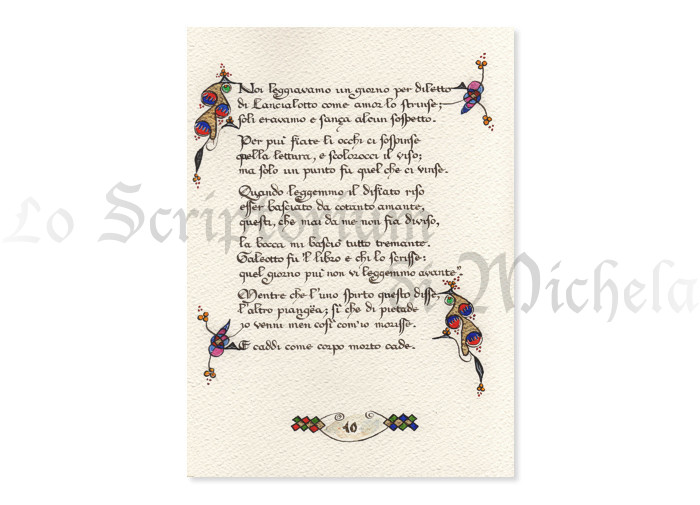 Noi leggiavamo un giorno per diletto
di Lancialotto come amor lo strinse;
soli eravamo e sança alcun sospetto.
Per piu' fiate li occhi ci sospinse
quella lettura, e scolorocci il viso;
ma solo un punto fu quel che ci vinse.
Quando leggemmo il disiato riso
esser basciato da cotanto amante,
questi, che mai da me non fia diviso,
la bocca mi basciò tutto tremante.
Galeotto fu 'l libro e chi lo scrisse:
quel giorno piu' non vi leggemmo avante".
Mentre che l'uno spirto questo disse,
l'altro piangëa; sì che di pietade
io venni men così com'io morisse.
E caddi come corpo morto cade.
10
Lo Scriptorium
di Michela